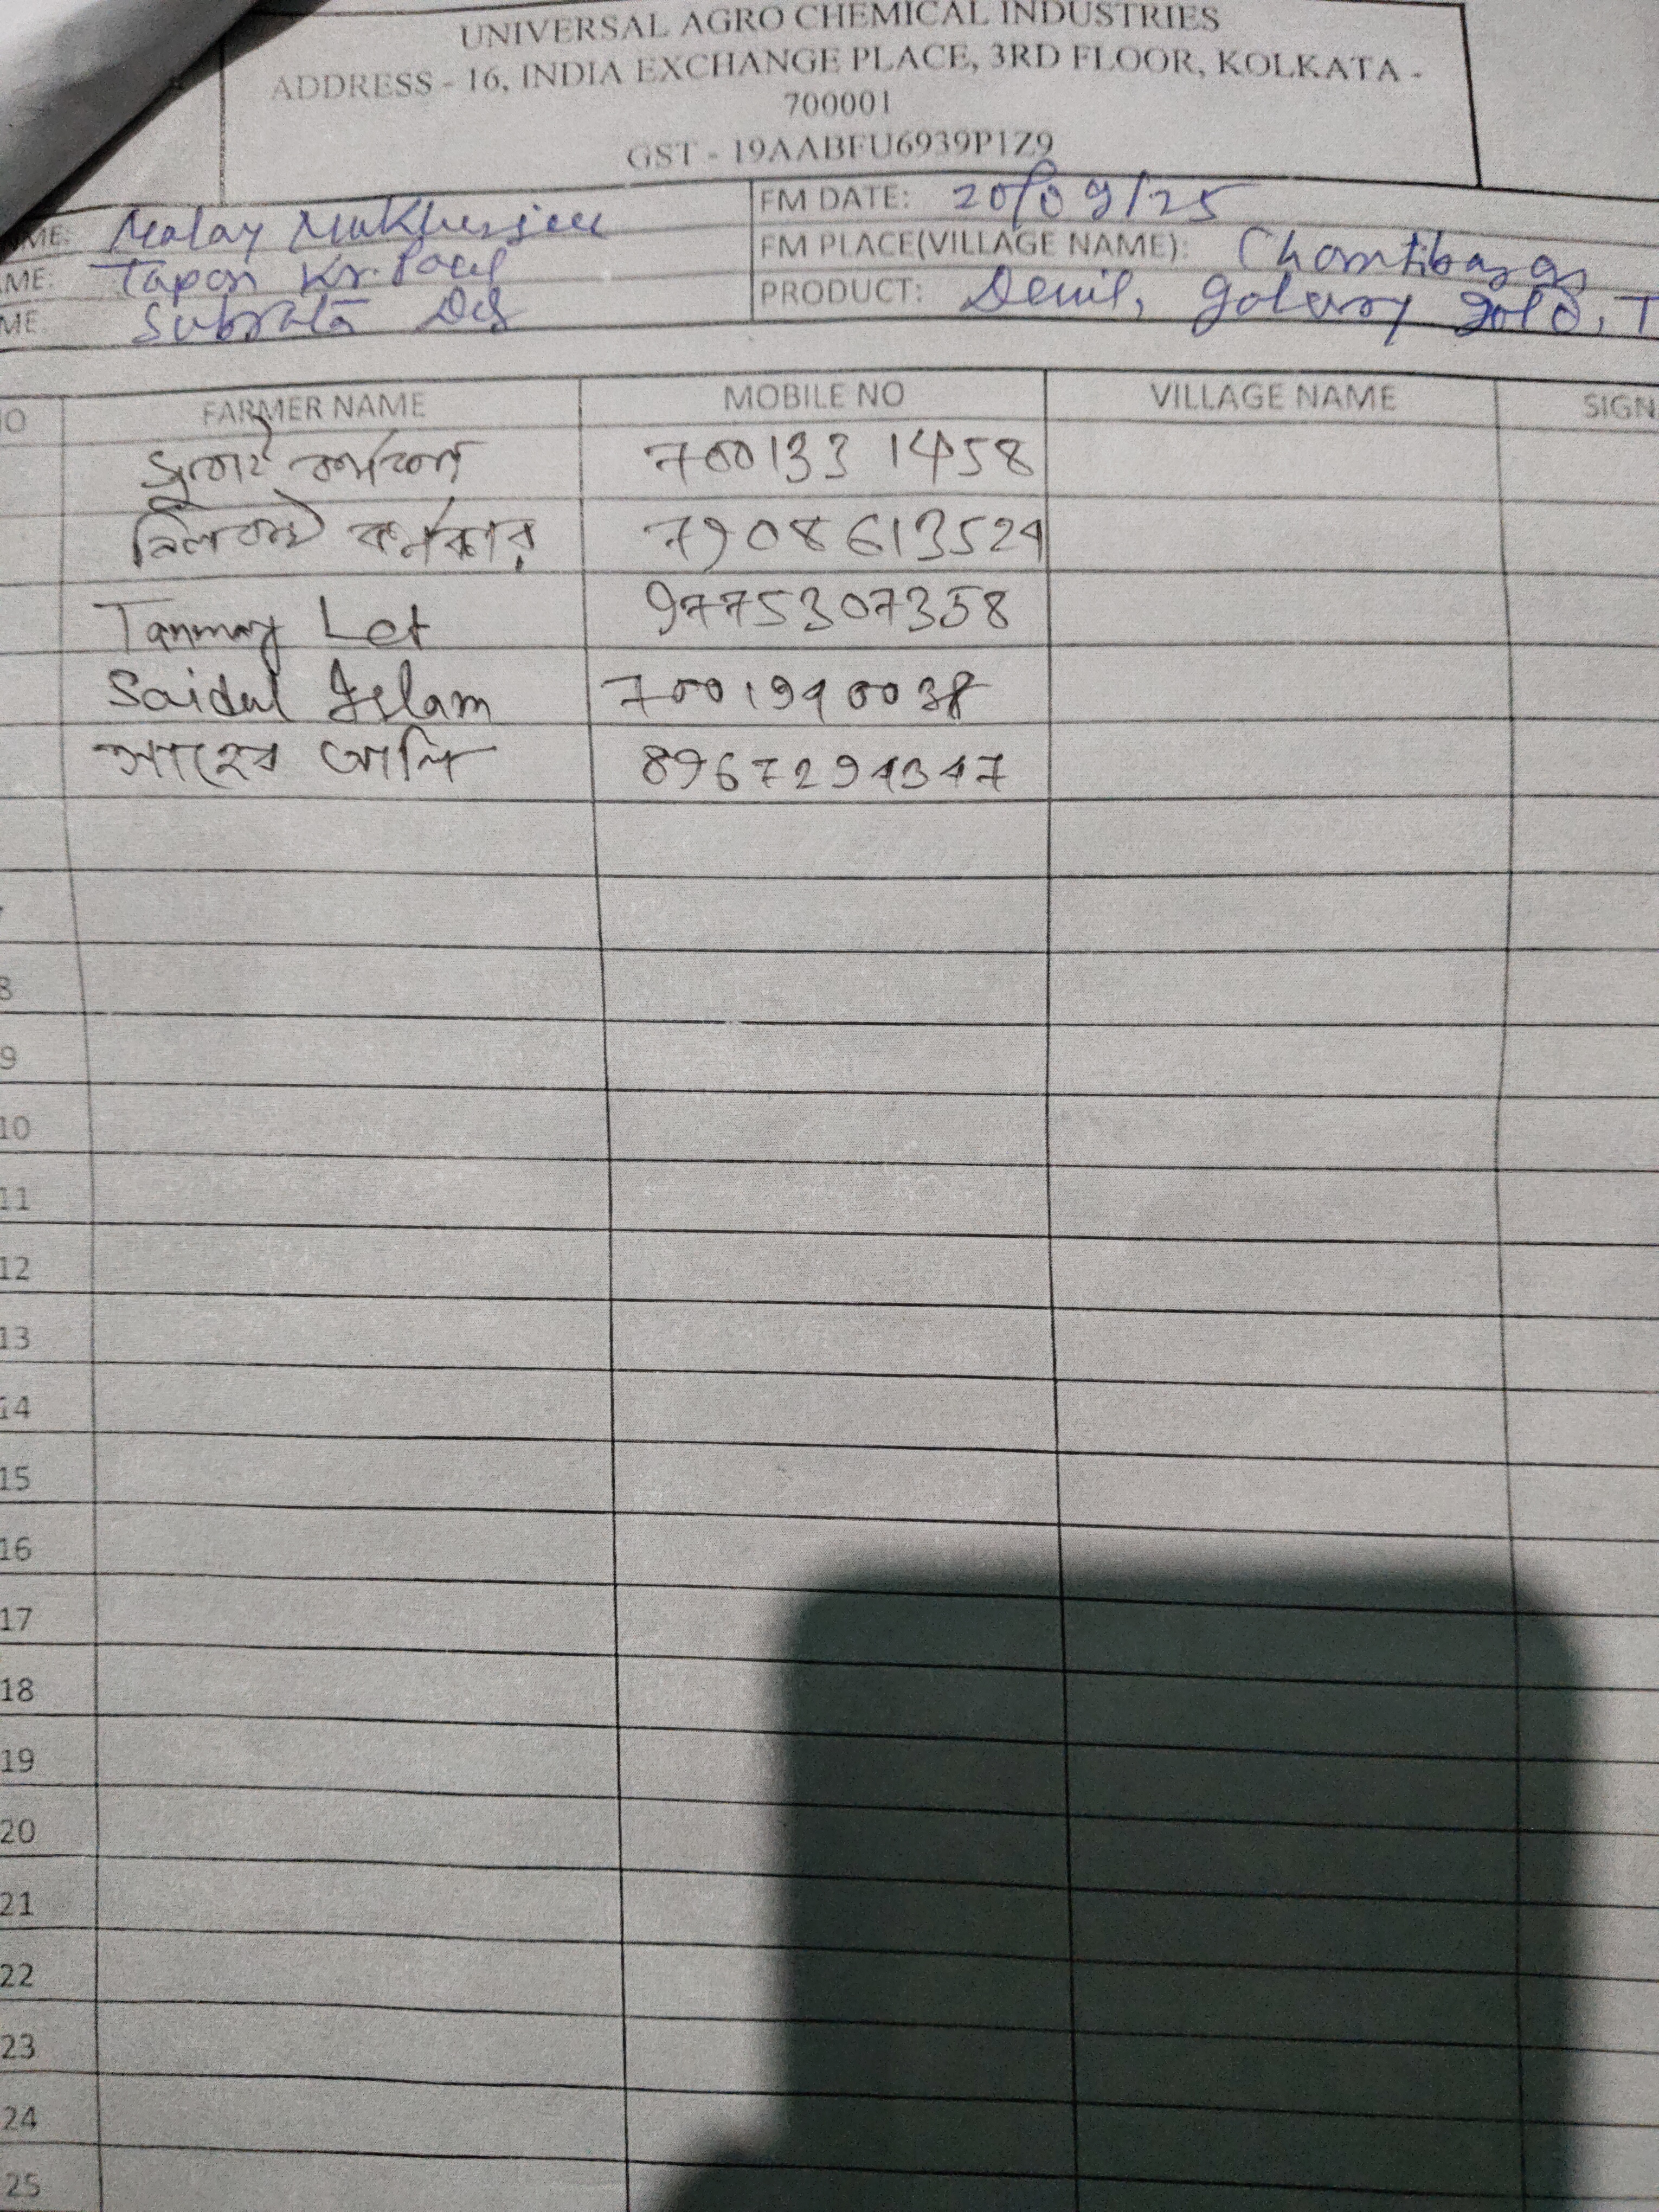 UNIVERSAL AGRO CHEMICAL INDUSTRIES
ADDRESS - 16, INDIA EXCHANGE PLACE, 3RD FLOOR, KOLKATA -
700001
GST - 19AABFU6939P1Z9
ME: Malay Mukherjee FM DATE: 20/09/25
AME: Tapan Kr. Paul FM PLACE(VILLAGE NAME):
ME: Subrata Das PRODUCT: Denil, galaxy gold, T
NO FARMER NAME MOBILE NO VILLAGE NAME SIGN
7001331458
কর্মকার 7908613524
Tanmay Let 9775307358
Saidul Islam 7001940038
সাহেব আলি 8967294347
8
9
10
11
12
13
14
15
16
17
18
19
20
21
22
23
24
25